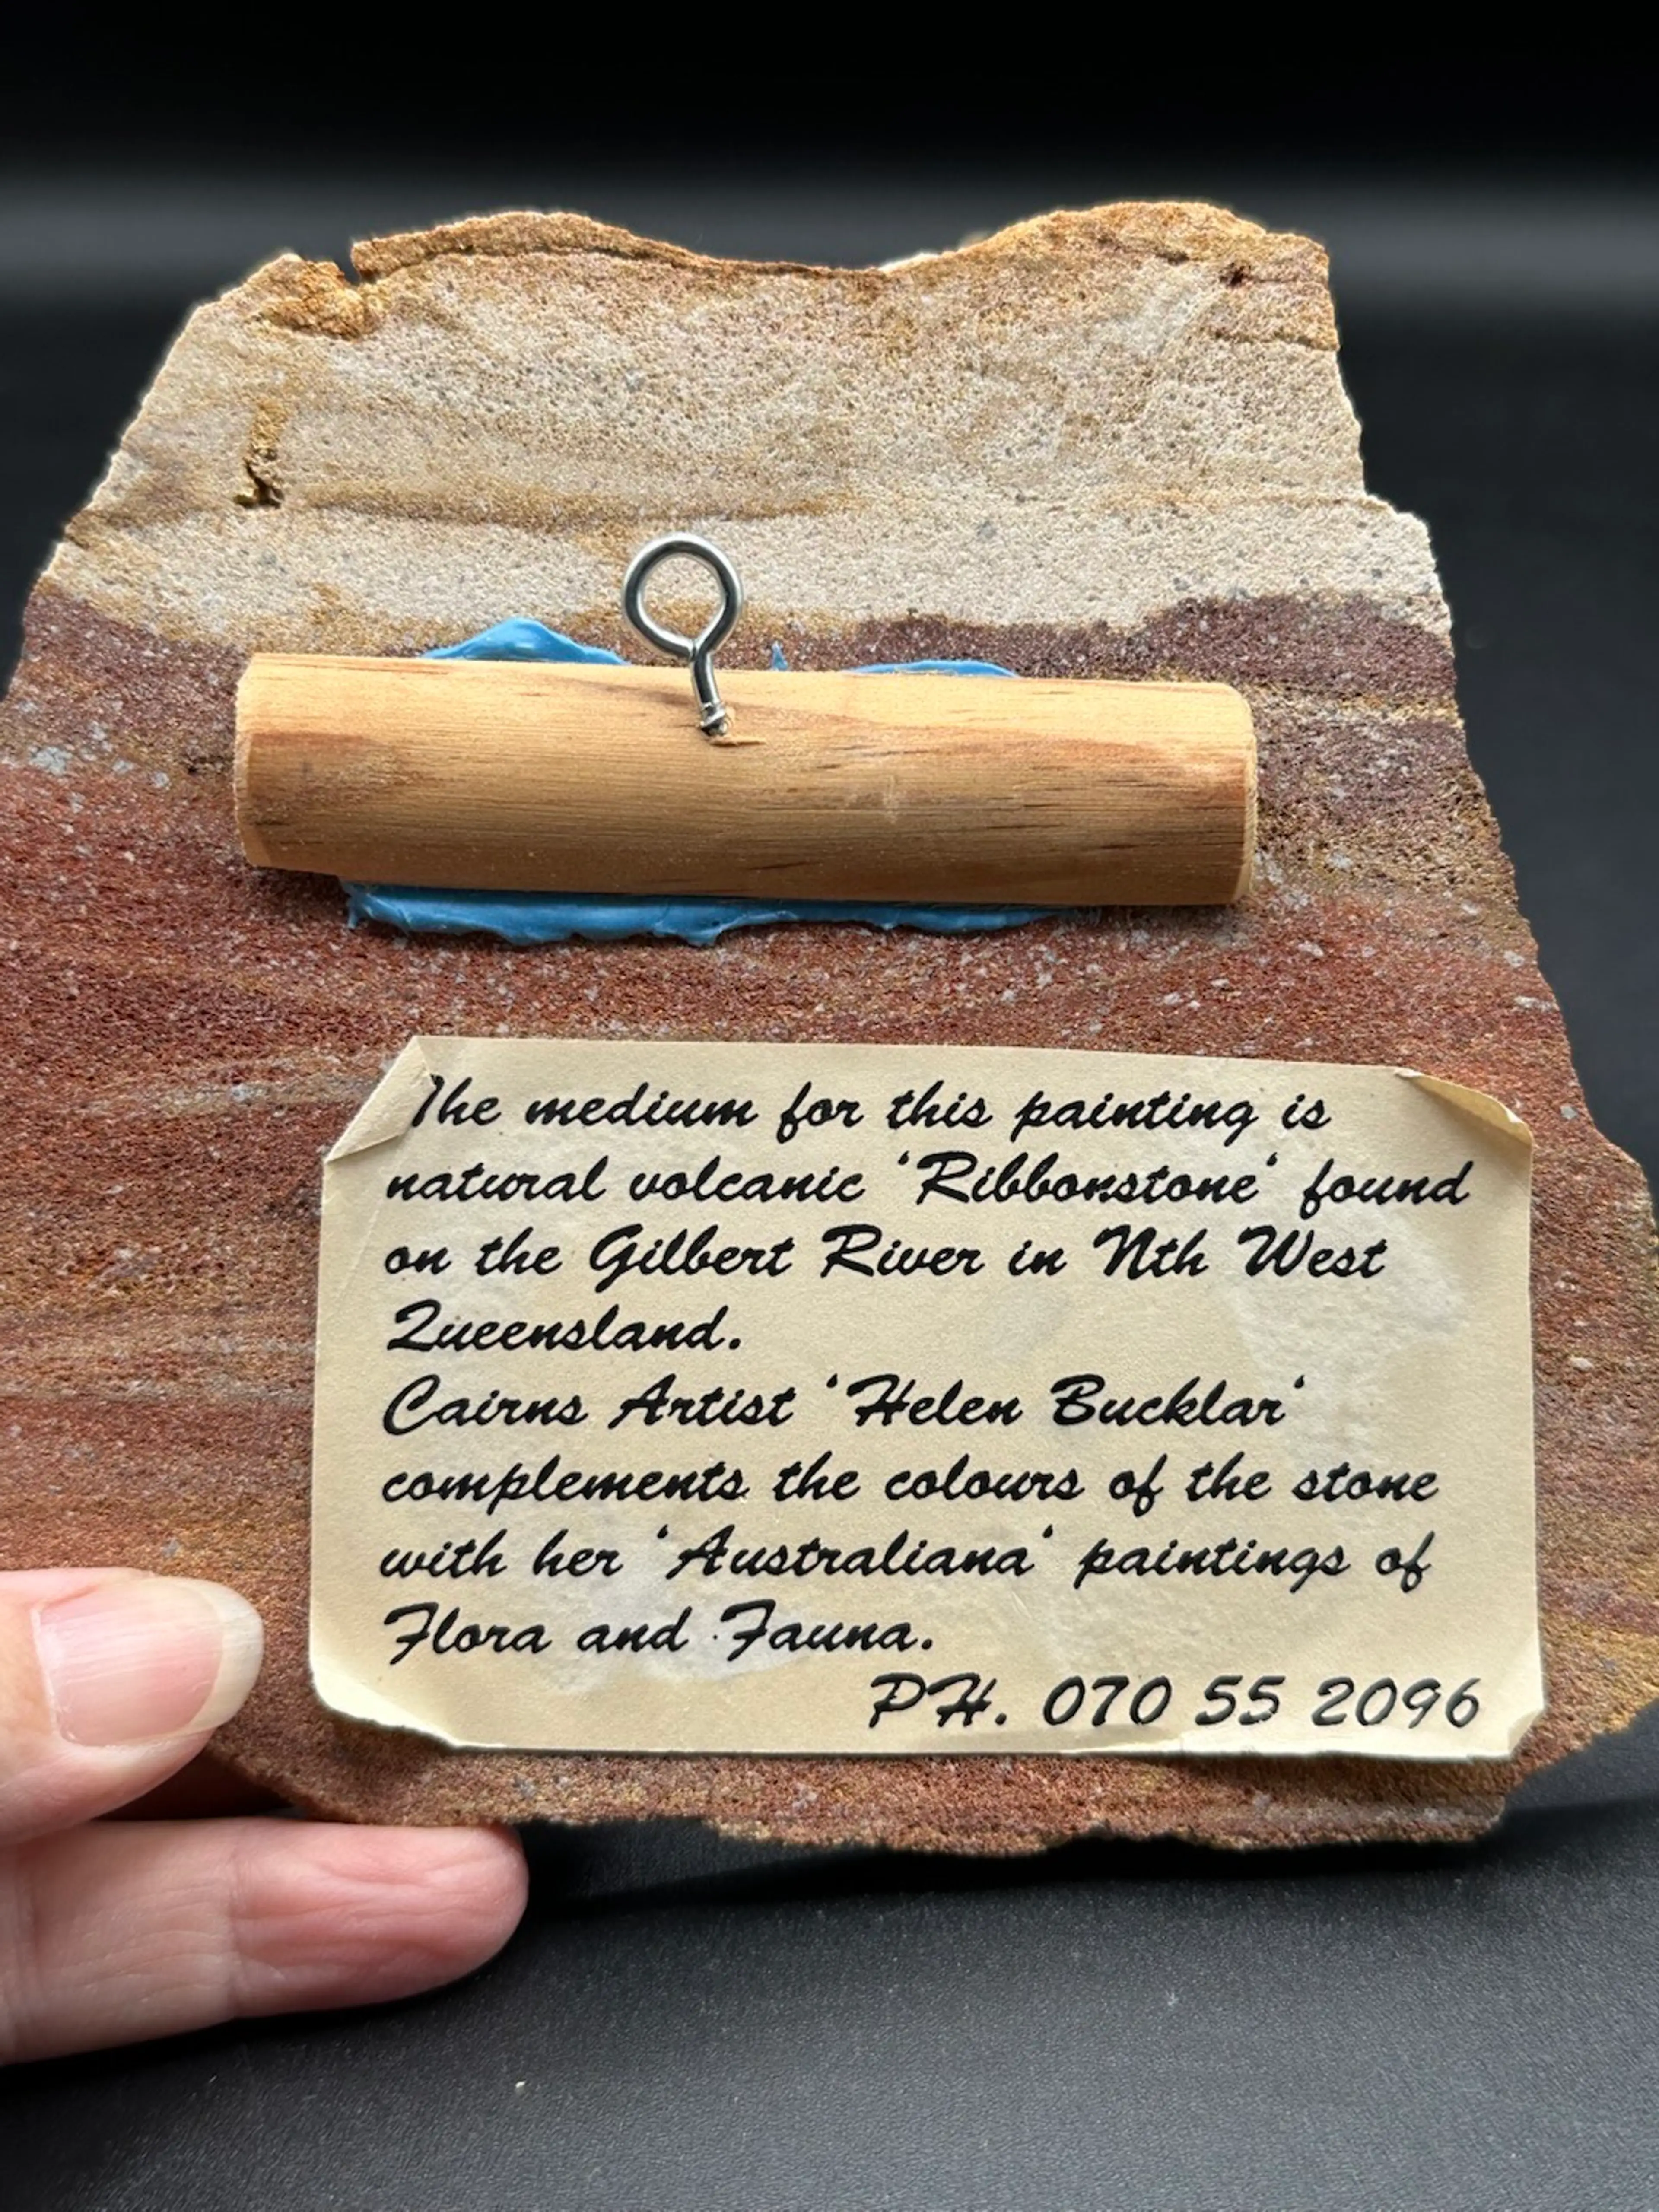 The medium for this painting is
natural volcanic 'Ribbonstone' found
on the Gilbert River in Nth West
Queensland.
Cairns Artist 'Helen Bucklar'
complements the colours of the stone
with her 'Australiana' paintings of
Flora and Fauna.
PH. 070 55 2096